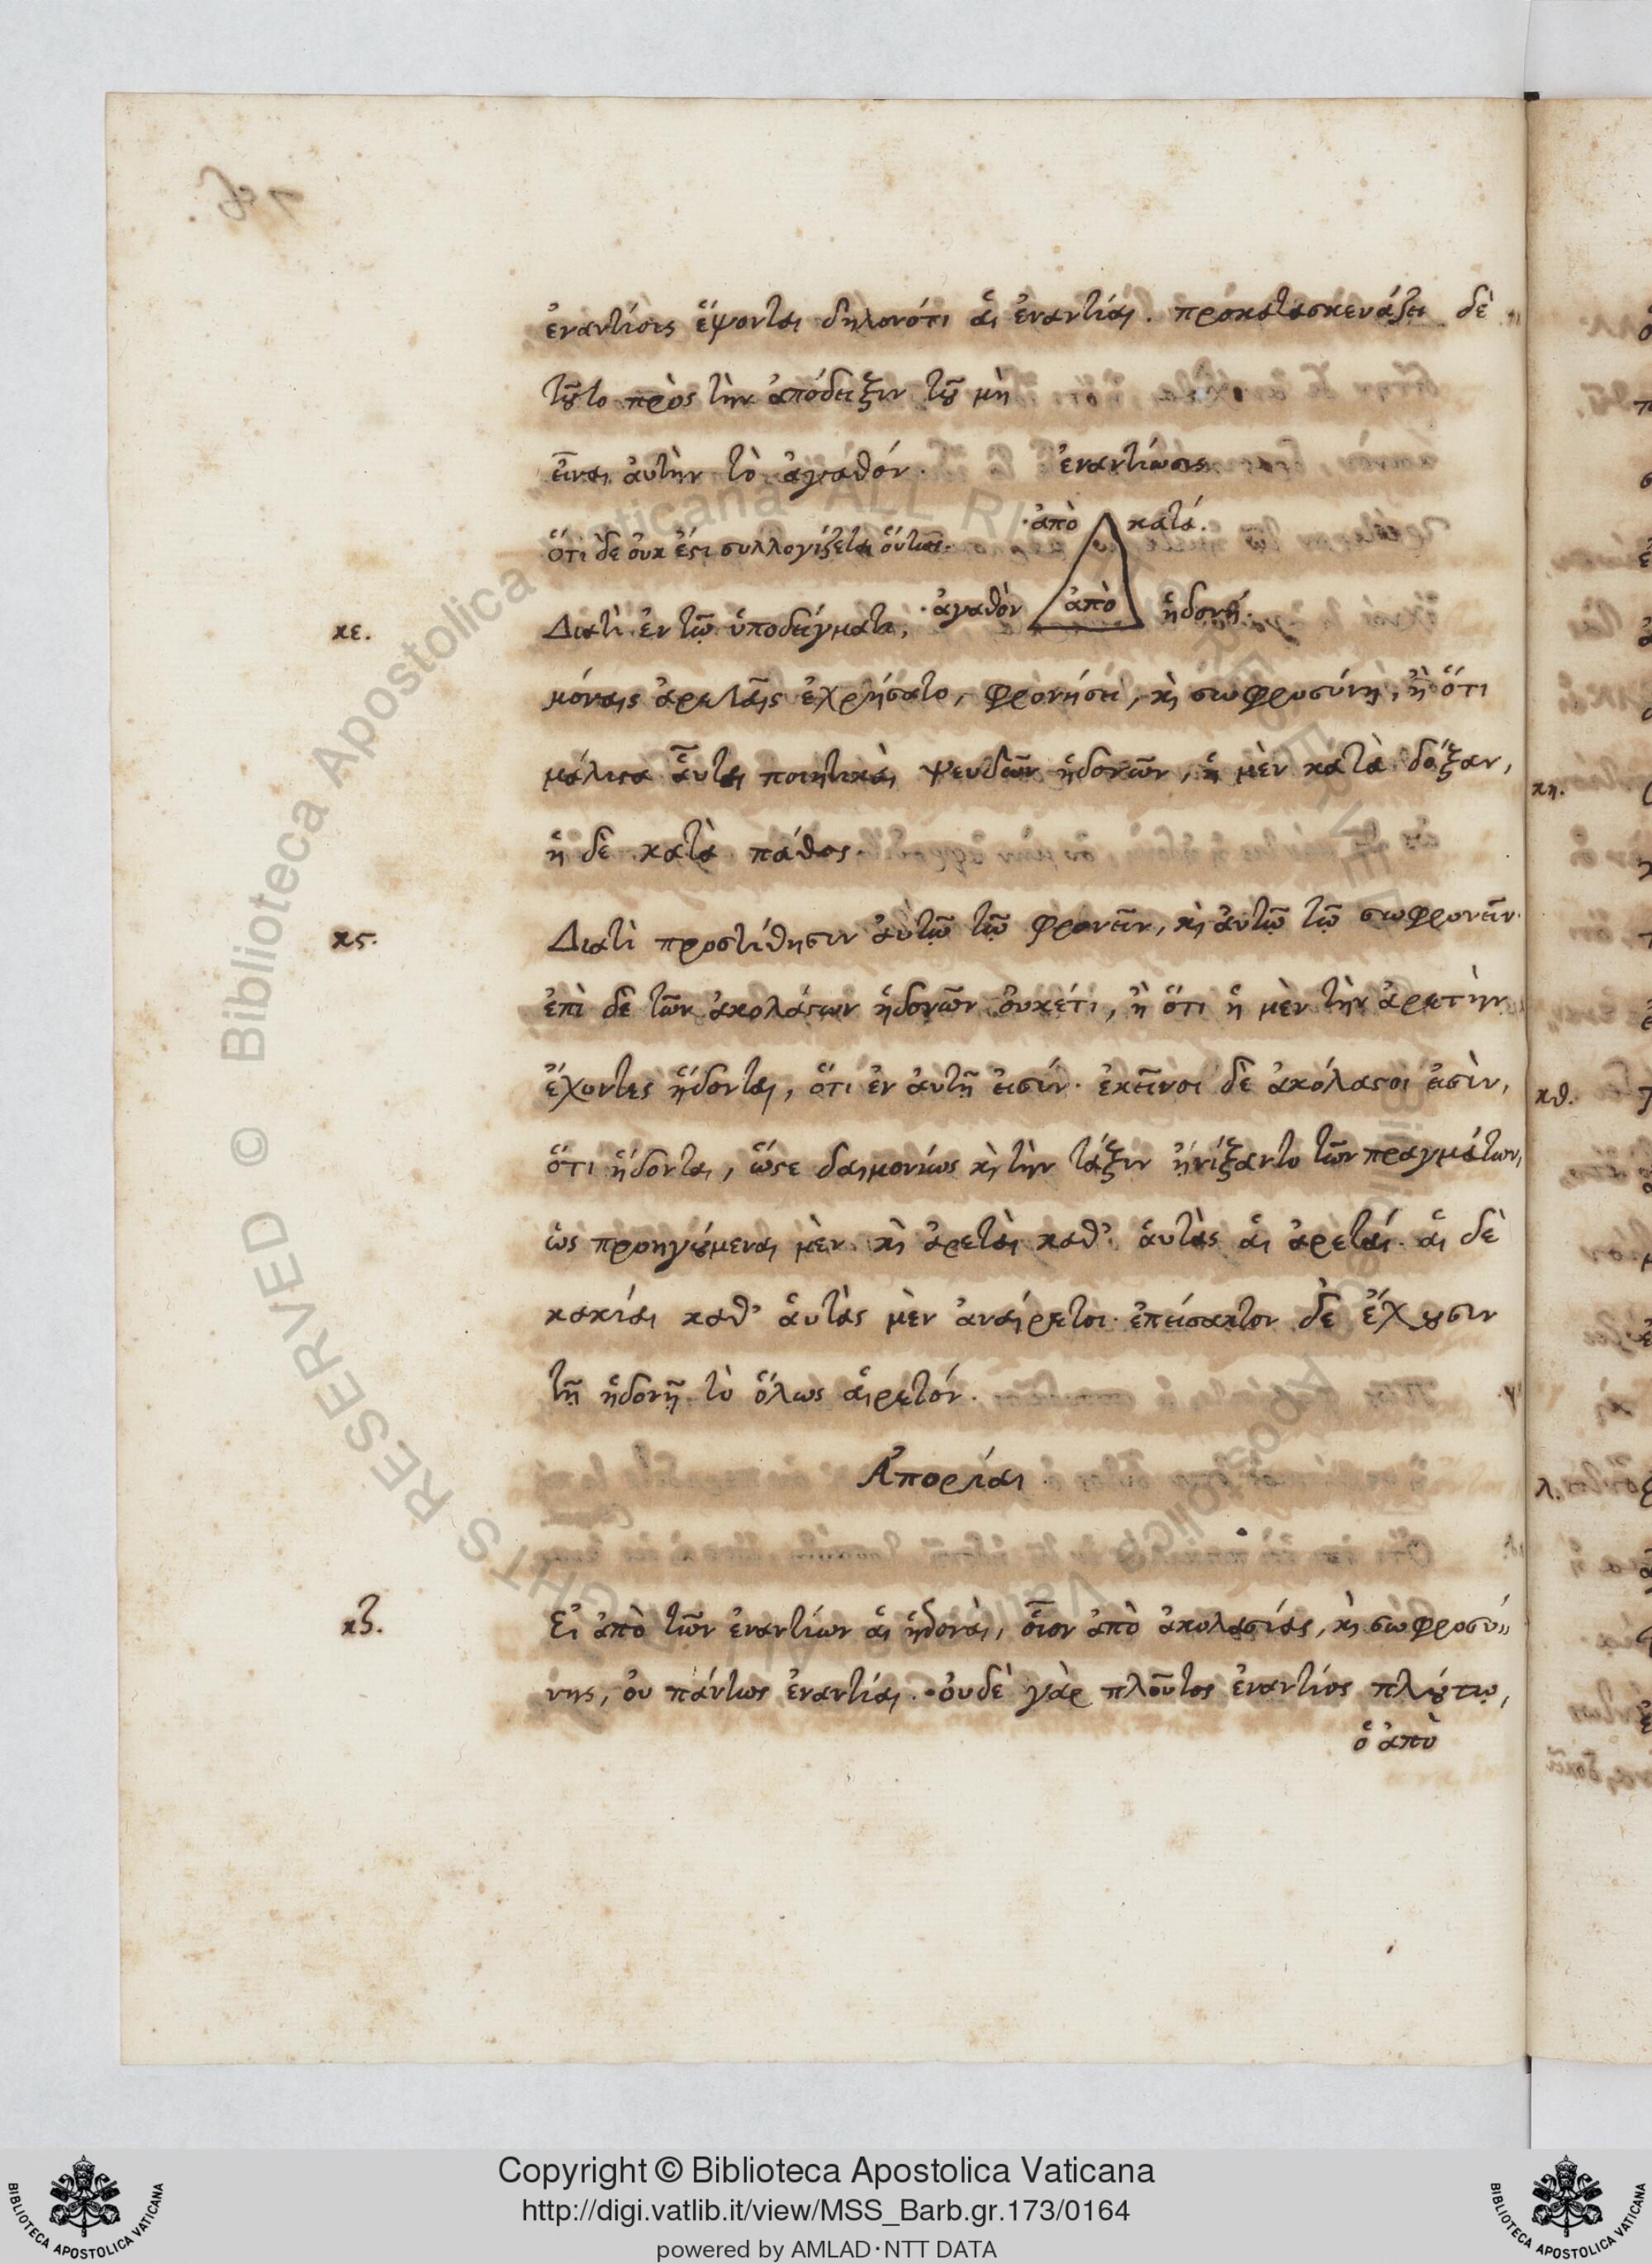 ἐναντίοις ἕψονται δηλονότι αἱ ἐναντίαι. προκατασκευάζει δὲ
τοῦτο πρὸς τὴν ἀπόδειξιν τοῦ μὴ
εἶναι αὐτὴν τὸ ἀγαθόν.
ἐναντίωσις
ὅτι δὲ οὐκ ἔστι συλλογίζεται οὕτως.
ἀπὸ κατά.
ἀγαθὸν ἀπὸ ἡδονή.
κε. Διατὶ ἐν τῷ ὑποδείγματι,
μόναις ἀρεταῖς ἐχρήσατο, φρονήσει, καὶ σωφροσύνη, ἢ ὅτι
μάλιστα αὗται ποιητικαὶ ψευδῶν ἡδονῶν, ἡ μὲν κατὰ δόξαν,
ἡ δὲ κατὰ πάθος.
κς. Διατὶ προστίθησιν αὐτῷ τῷ φρονεῖν, καὶ αὐτῷ τῷ σωφρονεῖν·
ἐπὶ δὲ τῶν ἀκολάστων ἡδονῶν οὐκέτι, ἢ ὅτι ἡ μὲν τὴν ἀρετὴν
ἔχοντες ἥδονται, ὅτι ἐν αὐτῇ εἰσίν· ἐκεῖνοι δὲ ἀκόλαστοι εἰσὶν,
ὅτι ἥδονται, ὥστε δαιμονίως καὶ τὴν τάξιν ᾐνίξαντο τῶν πραγμάτων,
ὡς προηγούμεναι μὲν καὶ ἀρεταὶ καθ' αὑτὰς αἱ ἀρεταί· αἱ δὲ
κακίαι καθ' αὑτὰς μὲν ἀναίρετοι· ἐπείσακτον δὲ ἔχουσιν
τῇ ἡδονῇ τὸ ὅλως αἱρετόν.
Ἀπορίαι
κζ. Εἰ ἀπὸ τῶν ἐναντίων αἱ ἡδοναὶ, οἷον ἀπὸ ἀκολασίας, καὶ σωφροσύ"
νης, οὐ πάντως ἐναντίαι. οὐδὲ γὰρ πλοῦτος ἐναντίος πλούτῳ,
ὁ ἀπὸ
Copyright © Biblioteca Apostolica Vaticana
http://digi.vatlib.it/view/MSS_Barb.gr.173/0164
powered by AMLAD·NTT DATA